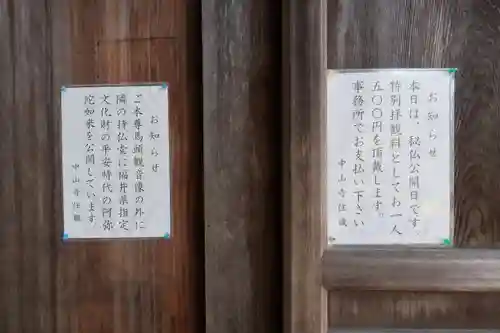 お知らせ
本日は、秘仏公開日です。
特別拝観料としてお一人
五〇〇円を頂戴します。
事務所でお支払い下さい
中山寺住職
お知らせ
ご本尊馬頭観音像の外に
隣の持仏堂に福井県指定
文化財の平安時代の阿弥
陀如来を公開しています
中山寺住職